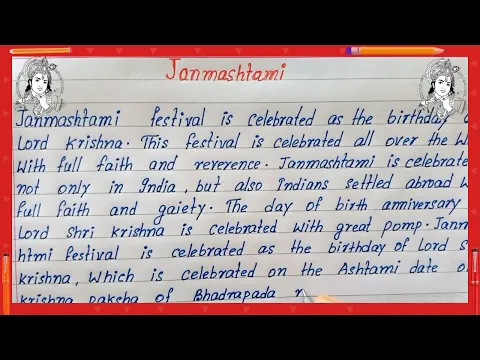 Janmashtami
Janmashtami festival is celebrated as the birthday
Lord Krishna. This festival is celebrated all over the
With full faith and reverence. Janmashtami is celebrate
not only in India, but also Indians settled abroad
full faith and gaiety. The day of birth anniversary
Lord Shri krishna is celebrated with great pomp. Janm
htmi festival is celebrated as the birthday of Lord S
krishna, Which is celebrated on the Ashtami date o
krishna paksha of Bhadrapada